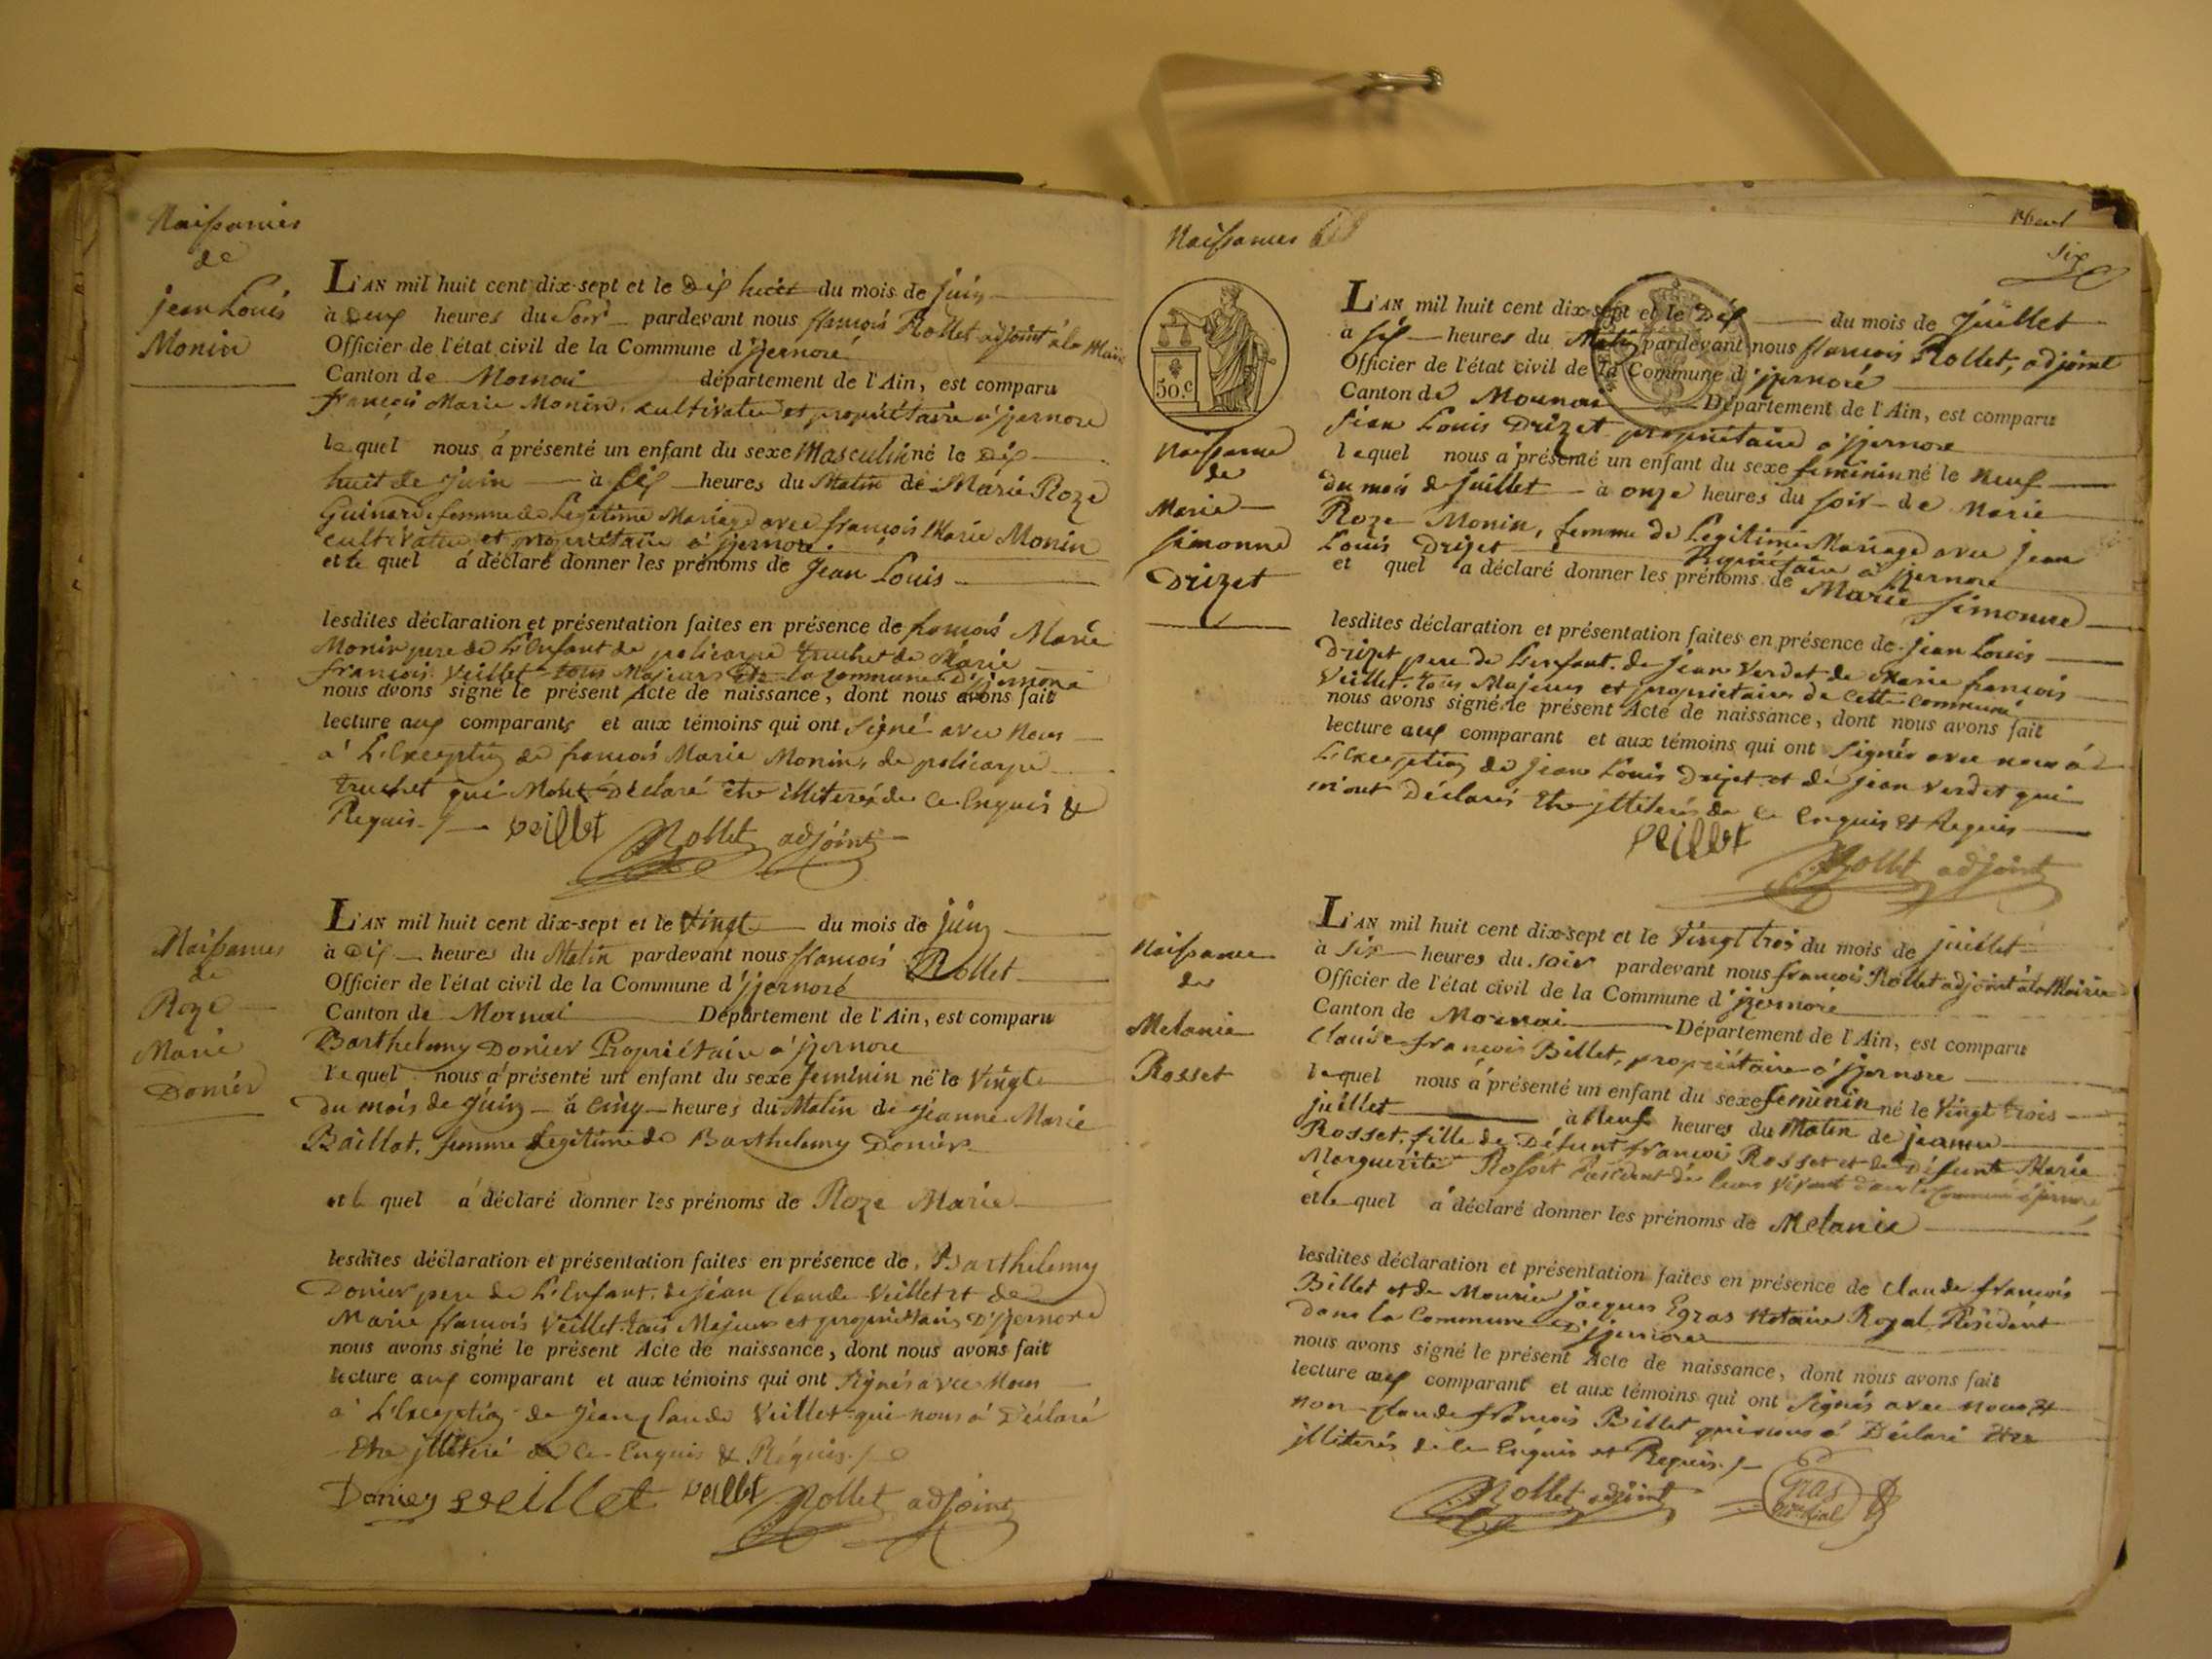 Naissances
de
jean Louis
Monin
L'AN mil huit cent dix-sept et le Dix huit du mois de juin
à Deux heures du Soir pardevant nous françois Rollet adjoint à la Mairie
Officier de l'état civil de la Commune d'jzernore
Canton de Mornai département de l'Ain, est comparu
françois Marie Monin, cultivateur et propriétaire à jzernore
lequel nous à présenté un enfant du sexe Masculin né le Dix
huit de Juin à six heures du Matin de Marie Roze
Guinard femme de Legitime Mariage avec françois Marie Monin
cultivateur et propriétaire à jzernore
et le quel à déclaré donner les prénoms de Jean Louis
lesdites déclaration et présentation faites en présence de françois Marie
Monin pere de L'Enfant de policarpe truchet de Marie
françois Veillet tous Majeurs de la commune D'jzernore
nous avons signé le présent Acte de naissance, dont nous avons fait
lecture aux comparants et aux témoins qui ont signé avec nous
à L'Exception de françois Marie Monin, de policarpe
truchet qui Nous Déclaré etre illiterés de ce Enquis &
Requis veillet
Rollet adjoint
Naissances
de
Roze
Marie
Donier
L'AN mil huit cent dix-sept et le Vingt du mois de juin
à Dix heures du Matin pardevant nous françois Rollet
Officier de l'état civil de la Commune d'jzernoré
Canton de Mornai Département de l'Ain, est comparu
Barthelemy Donier Propriétaire à jzernore
lequel nous à présenté un enfant du sexe feminin né le Vingt
du mois de Juin à Cinq heures du Matin de Jeanne Marie
Baillat, femme legitime de Barthelemy Donier
et le quel à déclaré donner les prénoms de Roze Marie
lesdites déclaration et présentation faites en présence de Barthelemy
Donier pere de L'Enfant, de jean Claude Veillet et de
Marie françois Veillet tous Majeurs et proprietaires D'jzernore
nous avons signé le présent Acte de naissance, dont nous avons fait
lecture aux comparant et aux témoins qui ont signés avec nous
à L'Exception de Jean Claude Veillet qui nous à Déclaré
Etre jlliteré de ce Enquis & Réquis
Donier veillet veillet Rollet adjoint
Naissances
Six
50.c
Naissance
de
Marie
Simonne
Drizet
L'AN mil huit cent dix-sept et le Dix du mois de Juillet
à six heures du Matin pardevant nous françois Rollet, adjoint
Officier de l'état civil de la Commune d'jzernoré
Canton de Mornai Département de l'Ain, est comparu
Jean Louis Drizet propriétaire à jzernore
lequel nous à présenté un enfant du sexe feminin né le neuf
du mois de Juillet à onze heures du soir de Marie
Roze Monin, femme de Legitime Mariage avec jean
Louis Drizet Propriétaire à jzernore
et quel à déclaré donner les prénoms de Marie Simonne
lesdites déclaration et présentation faites en présence de jean Louis
Drizet pere de L'enfant de jean Verdet de Marie françois
Veillet tous Majeurs et proprietaires de cette commune
nous avons signé le présent Acte de naissance, dont nous avons fait
lecture aux comparant et aux témoins qui ont signés avec nous à
L'Exception de jean Louis Drizet et de jean Verdet qui
m'ont Déclarés Etre jlliterés de ce Enquis et Requis
veillet
Rollet adjoint
Naissance
de
Melanie
Rosset
L'AN mil huit cent dix-sept et le Vingt trois du mois de juillet
à Six heures du soir pardevant nous françois Rollet adjoint à la Mairie
Officier de l'état civil de la Commune d'jzernore
Canton de Mornai Département de l'Ain, est comparu
Claude françois Billet, propriétaire à jzernore
lequel nous à présenté un enfant du sexe feminin né le Vingt trois
juillet à Neuf heures du Matin de jeanne
Rosset, fille de Défunt françois Rosset et de Défunte Marie
Marguerite Rosset Residents de leurs vivant dans la Commune d'jzernore
et le quel à déclaré donner les prénoms de Melanie
lesdites déclaration et présentation faites en présence de Claude françois
Billet et de Monsieur jacques Egras Notaire Royal Résident
dans la Commune D'jzernore
nous avons signé le présent Acte de naissance, dont nous avons fait
lecture aux comparant et aux témoins qui ont signés avec nous et
non Claude françois Billet qui nous à Déclaré Etre
jlliterés de ce Enquis et Requis
Rollet adjoint